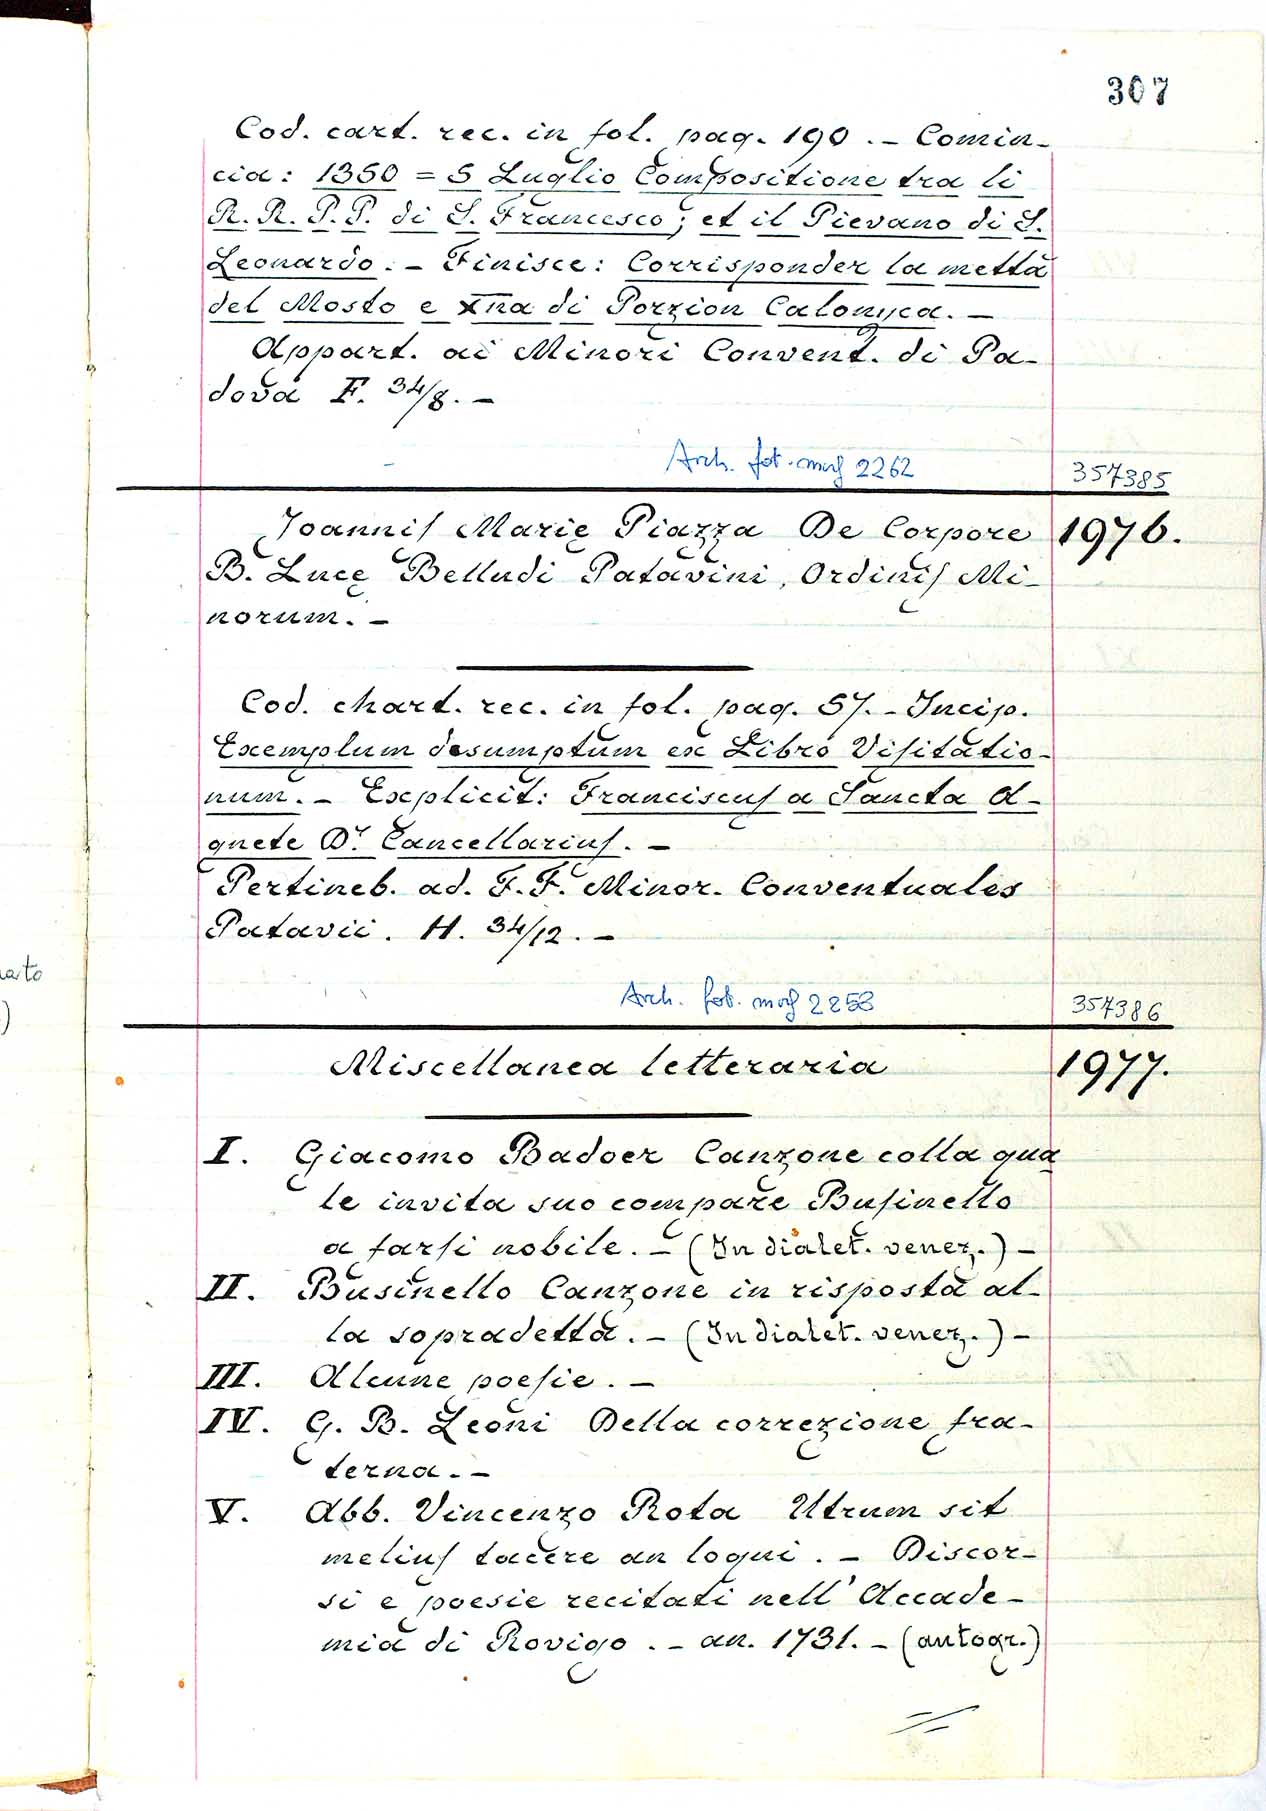 307
Cod. cart. rec. in fol. pag. 190. – Comin-
cia: 1350 = 5 Luglio Compositione tra li
R. R. P. P. di S. Francesco; et il Pievano di S.
Leonardo. – Finisce: Corrisponder la mettà
del Mosto e xña di Porzion Calonyca. –
Appart. ai Minori Convent. di Pa-
dova F. 34/8. –
Arch. fot. 2262
357385
Joannis Marię Piazza De Corpore 1976.
B. Lucę Belludi Patavini, Ordinis Mi-
norum. –
Cod. chart. rec. in fol. pag. 57. – Incip.
Exemplum desumptum ex Libro Visitatio-
num. – Explicit: Franciscus a Sancta A-
gnete Dr. Cancellarius. –
Pertineb. ad. F. F. Minor. Conventuales
Patavii. H. 34/12. –
Arch. fot.
357386
Miscellanea letteraria 1977.
I. Giacomo Badoer Canzone colla qua
le invita suo compare Businello
a farsi nobile. – (In dialet. venez.) –
II. Businello Canzone in risposta al-
la sopradetta. – (In dialet. venez.) –
III. Alcune poesie. –
IV. G. B. Leoni Della correzione fra-
terna. –
V. Abb. Vincenzo Rota Utrum sit
melius tacere an loqui. – Discor-
si e poesie recitati nell'Accade-
mia di Rovigo. – an. 1731. – (autogr.)
nato
)